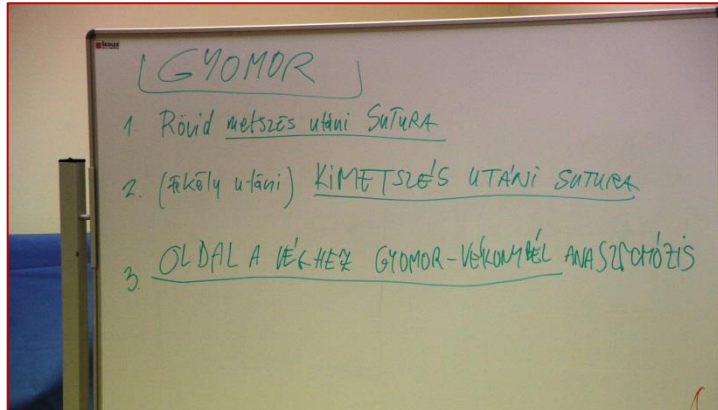 GYOMOR
1. Rövid metszés utáni SUTURA
2. (fekély utáni) KIMETSZÉS UTÁNI SUTURA
3. OLDAL A VÉGHEZ GYOMOR-VÉKONYBÉL ANASZTOMÓZIS